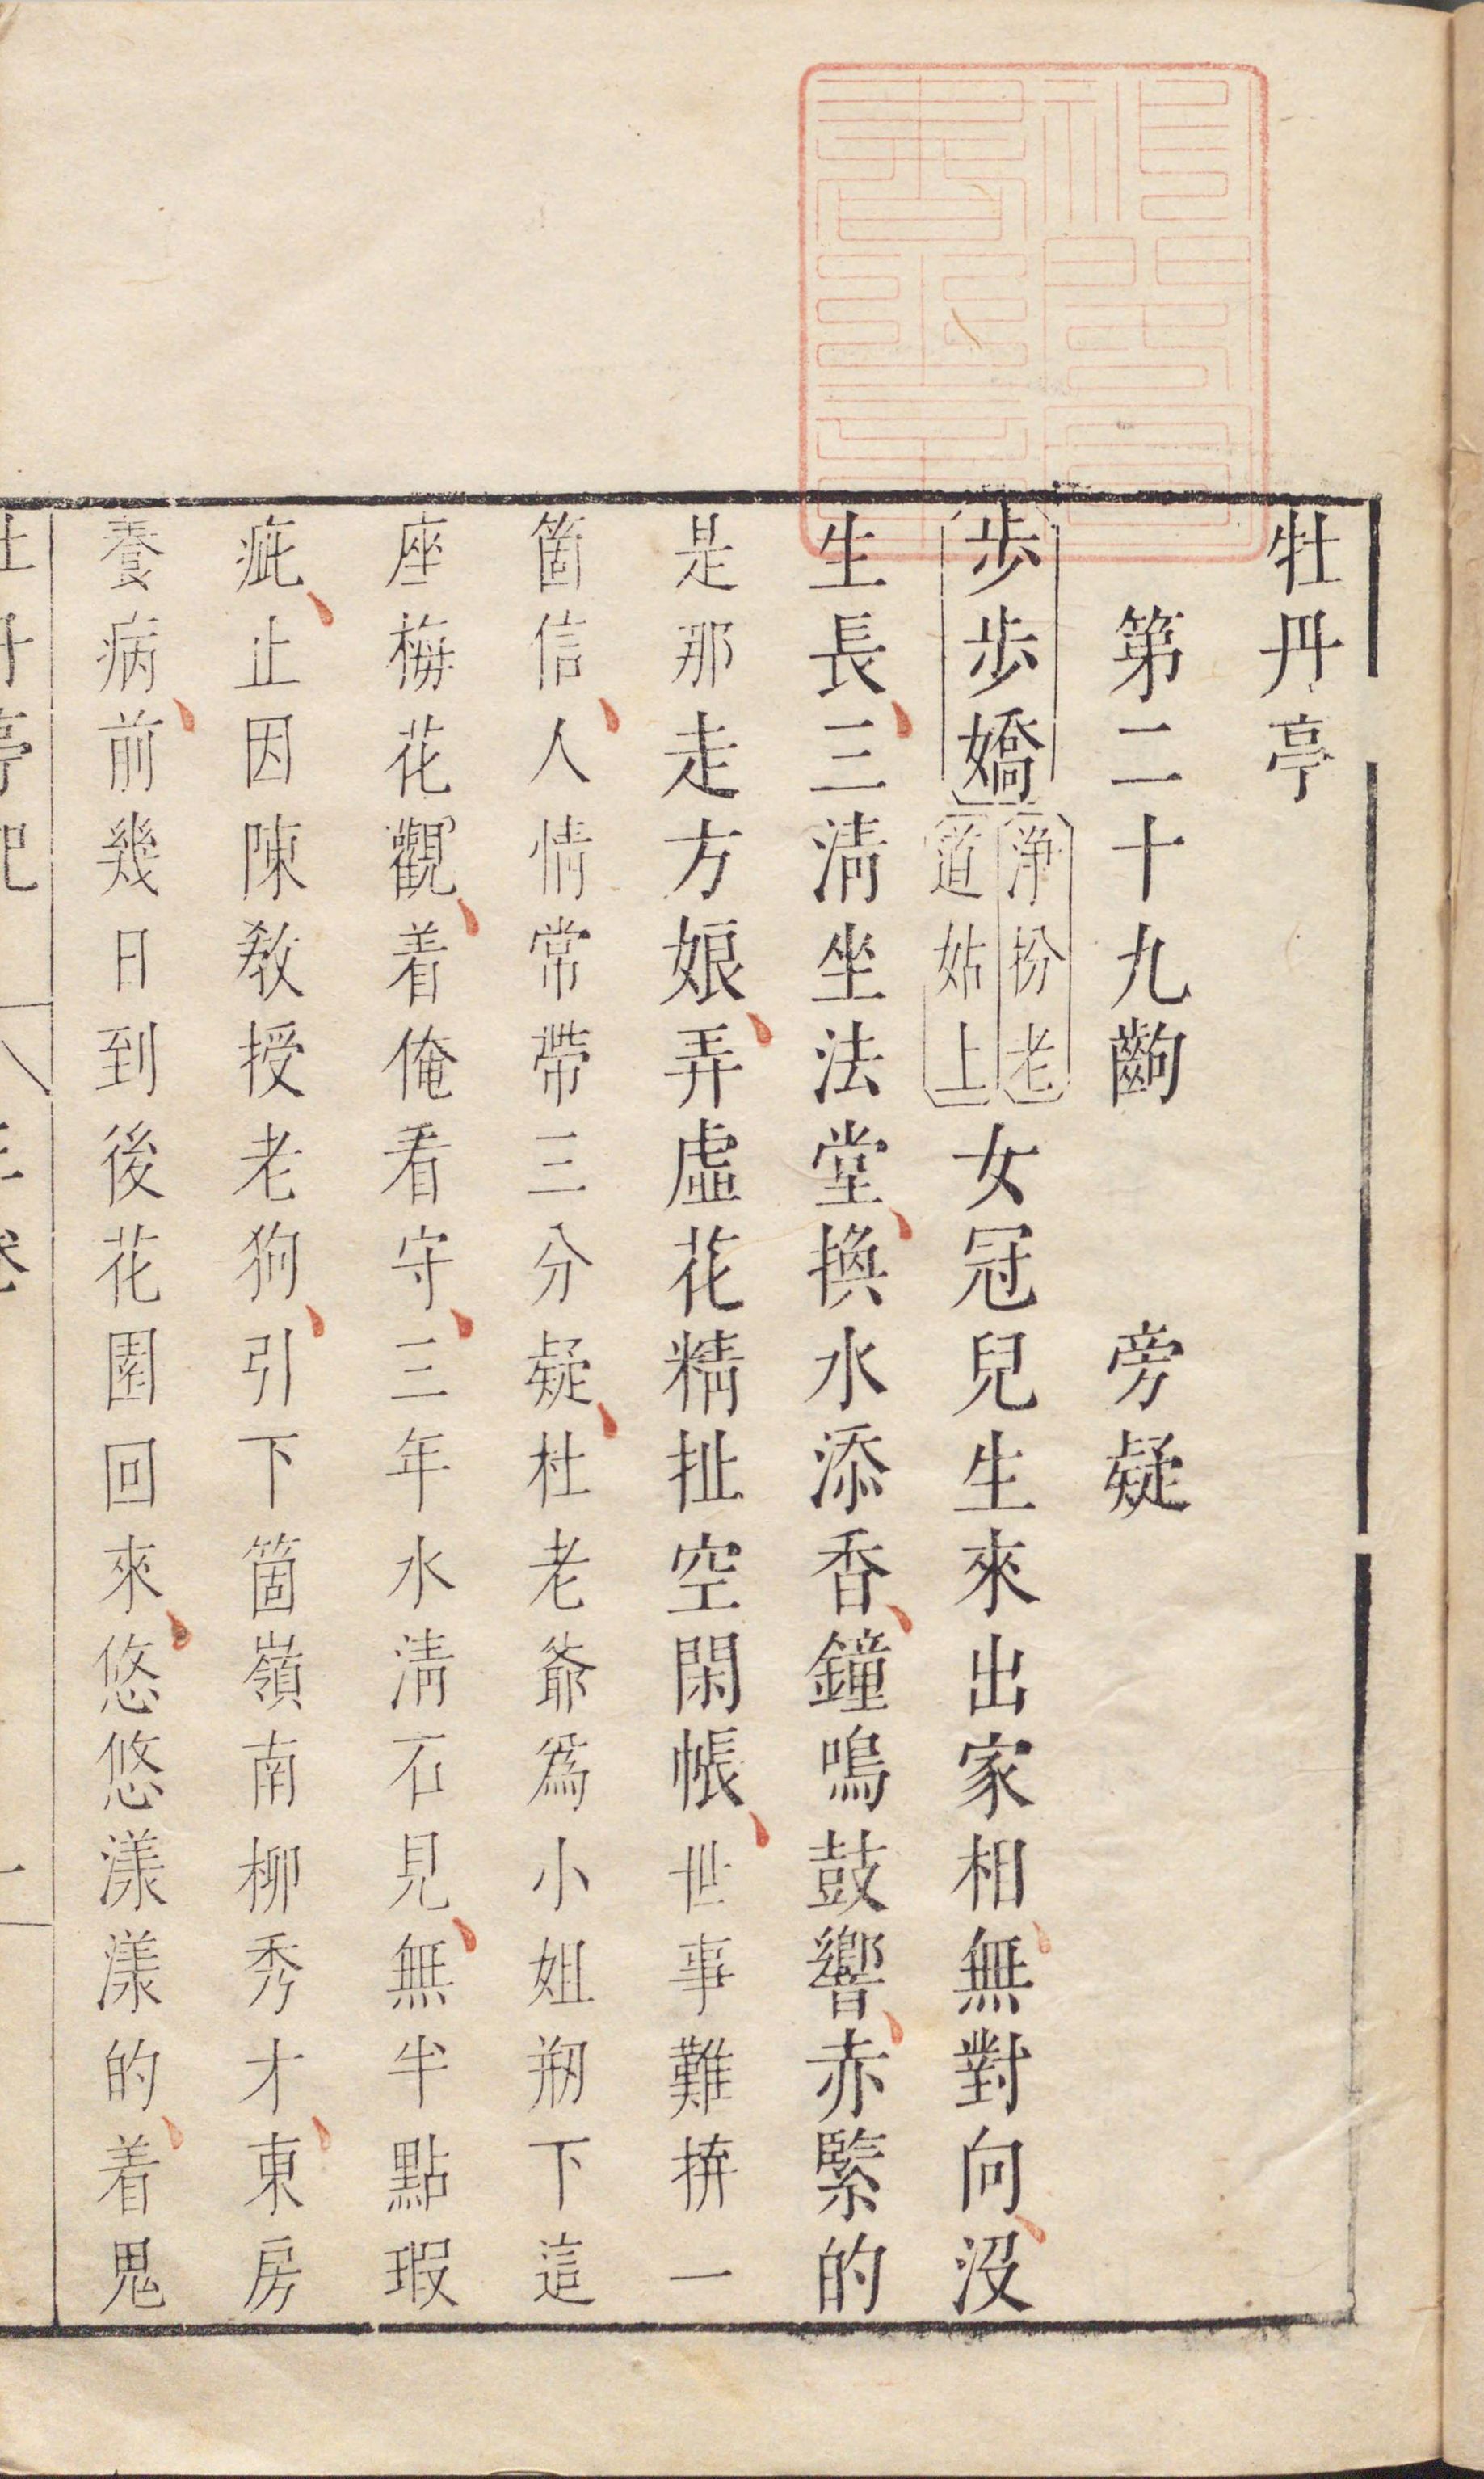 牡丹亭
第二十九齣 旁疑
步步嬌淨扮老道姑上女冠兒生來出家相無對向没
生長三清坐法堂換水添香鐘鳴鼓響赤緊的
是那走方娘弄虛花精扯空閑帳世事難拚一
箇信人情常帶三分疑杜老爺爲小姐剏下這
座梅花觀着俺看守三年水清石見無半點瑕
疵止因陳敎授老狗引下箇嶺南柳秀才東房
養病前幾日到後花園回來悠悠漾漾的着鬼